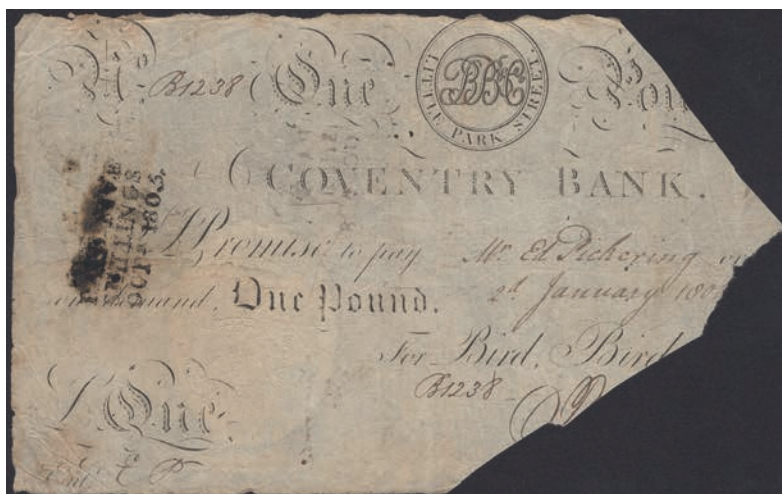 No. B1238 One Pou
BB&C
LITTLE PARK STREET.
COVENTRY BANK.
I Promise to pay Mr. Ed Pickering or
on demand. One Pound. 2d January 180
For Bird, Bird
B1238
£ One
SHILLINGS
OCT 1803.